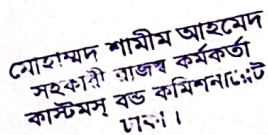 মোহাম্মদ শামীম আহমেদ
সহকারী রাজস্ব কর্মকর্তা
কাস্টমস্ বন্ড কমিশনারেট
ঢাকা।